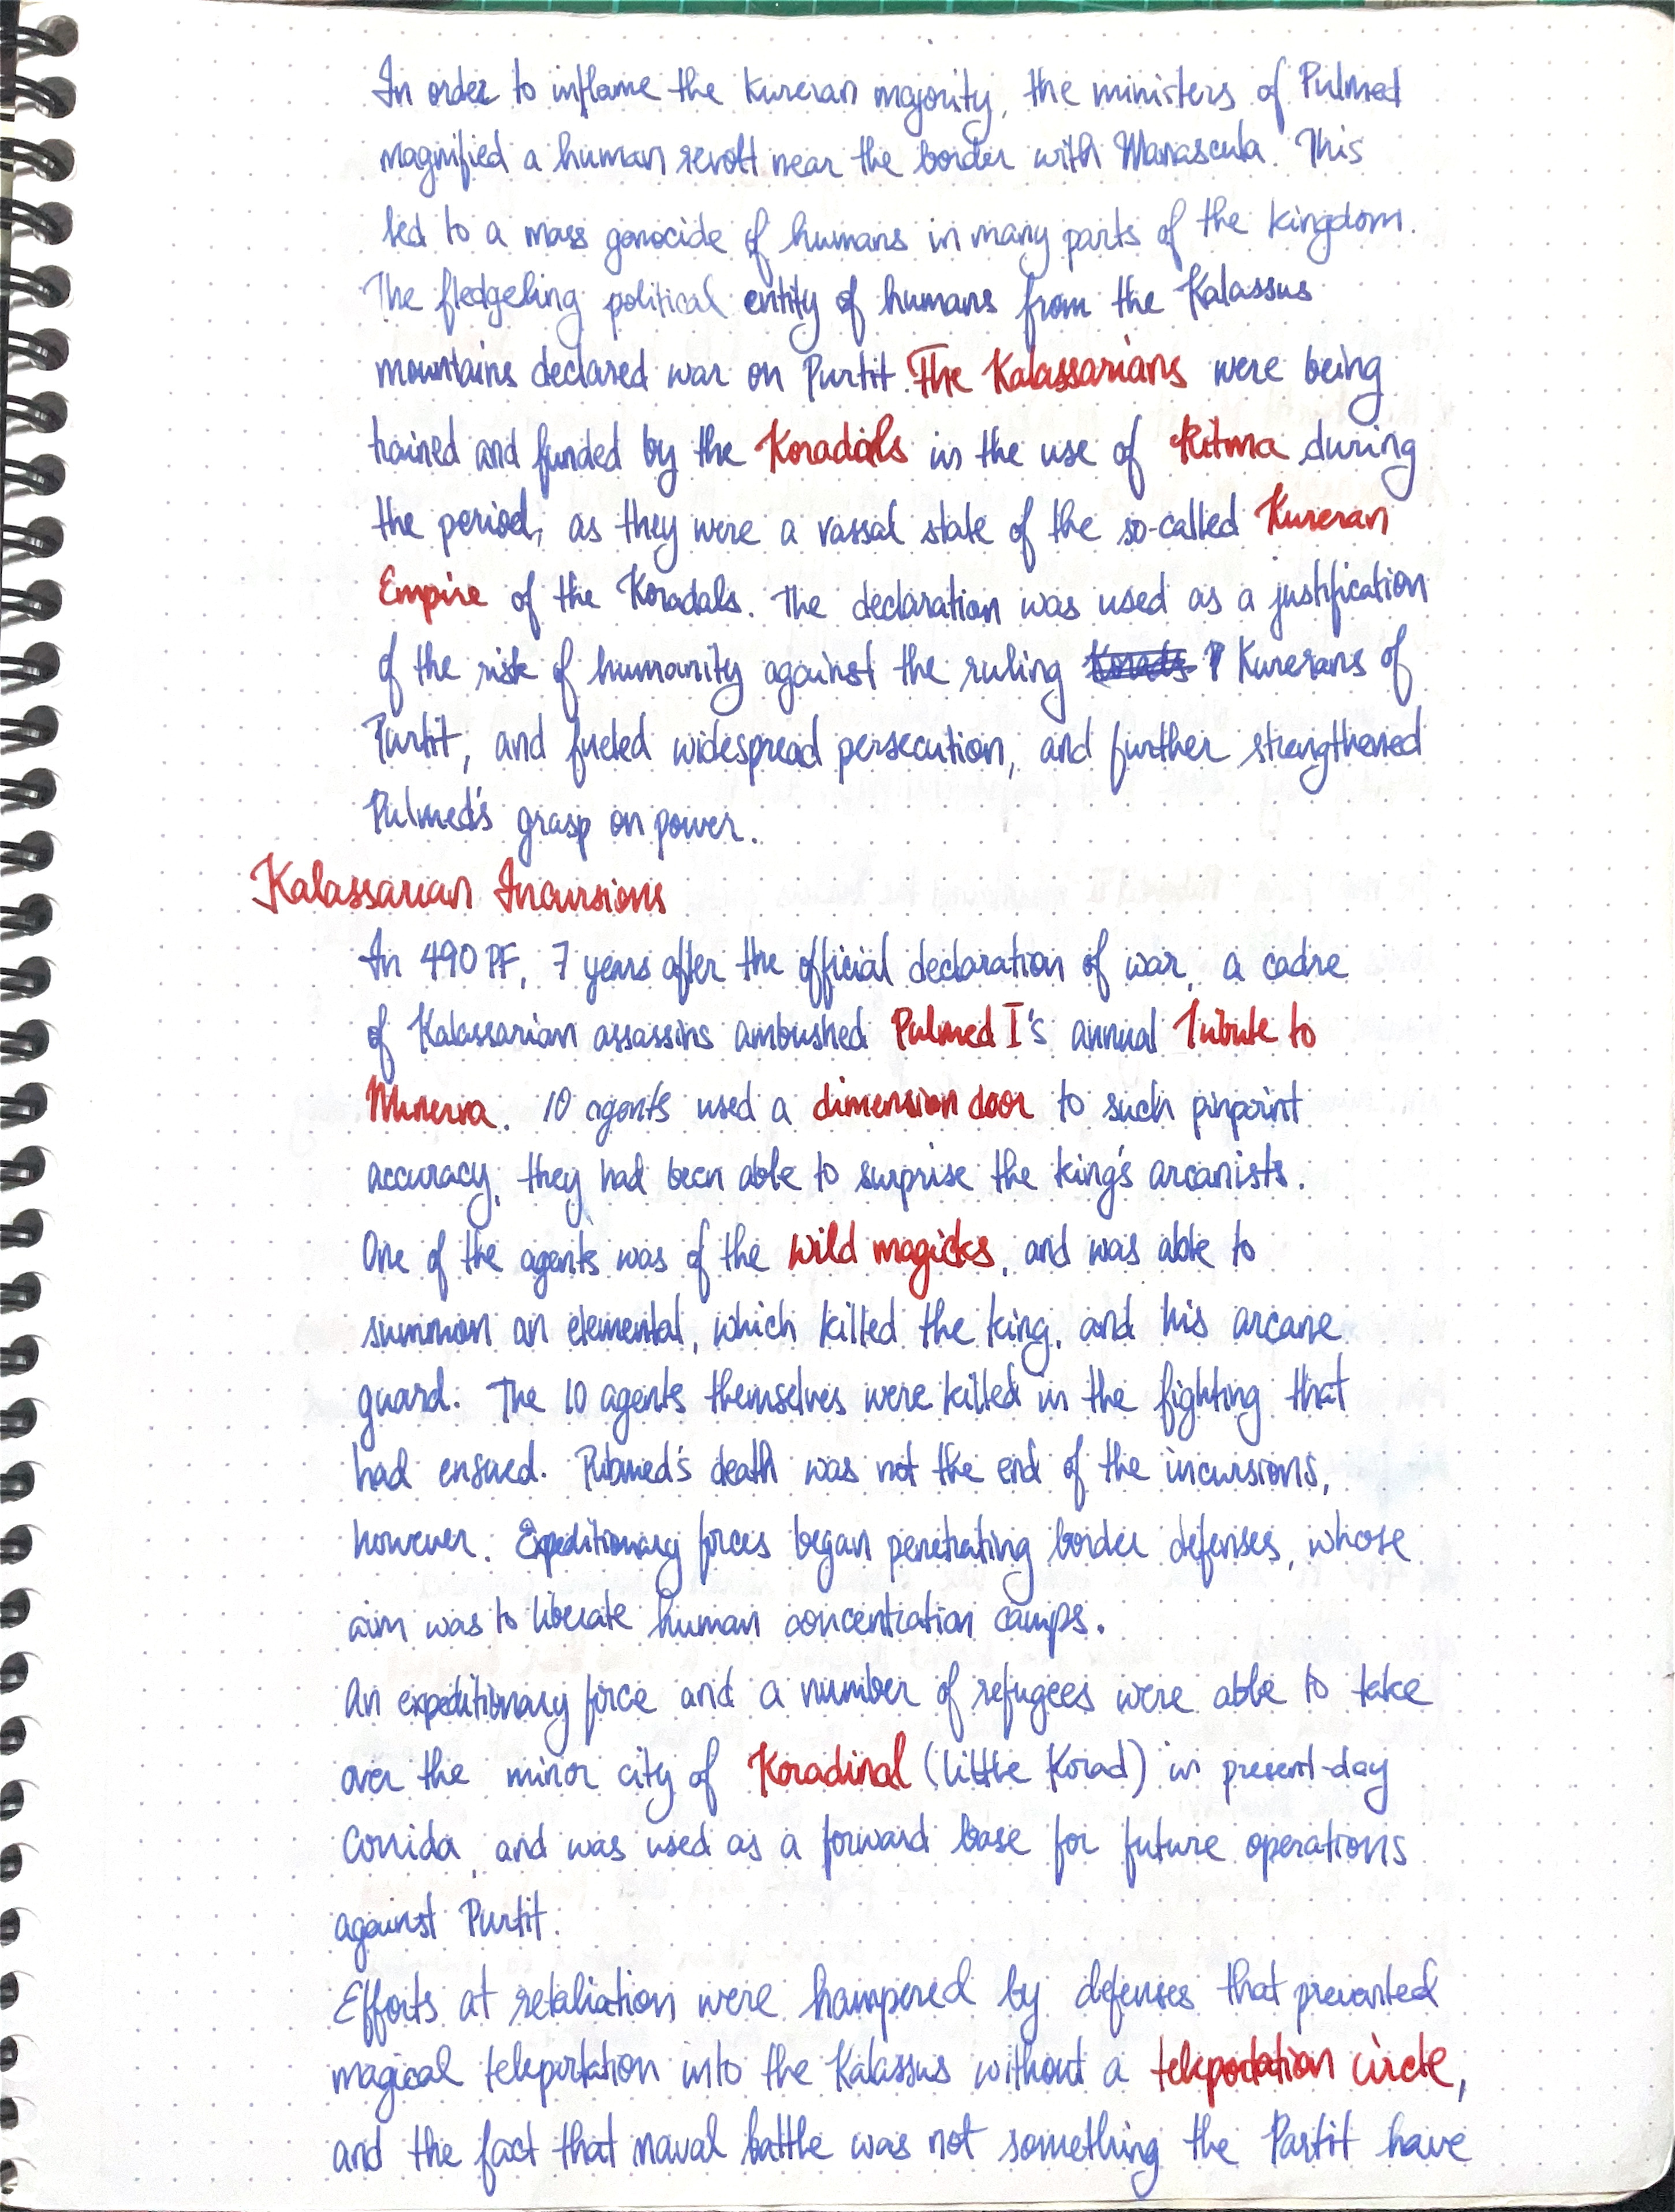 In order to inflame the Kureran majority, the ministers of Pulmed
magnified a human revolt near the border with Manascula. This
led to a mass genocide of humans in many parts of the kingdom.
The fledgeling political entity of humans from the Kalassus
mountains declared war on Purtit. The Kalassarians were being
trained and funded by the Koradals in the use of Ritma during
the period, as they were a vassal state of the so-called Kureran
Empire of the Koradals. The declaration was used as a justification
of the risk of humanity against the ruling Kurerans of
Purtit, and fueled widespread persecution, and further strengthened
Pulmed's grasp on power.
Kalassarian Incursions
In 490 PF, 7 years after the official declaration of war, a cadre
of Kalassarian assassins ambushed Pulmed I's annual Tribute to
Minerva. 10 agents used a dimension door to such pinpoint
accuracy, they had been able to surprise the king's arcanists.
One of the agents was of the wild magicks, and was able to
summon an elemental, which killed the king, and his arcane
guard. The 10 agents themselves were killed in the fighting that
had ensued. Pulmed's death was not the end of the incursions,
however. Expeditionary forces began penetrating border defenses, whose
aim was to liberate human concentration camps.
An expeditionary force and a number of refugees were able to take
over the minor city of Koradinal (Little Korad) in present-day
Corrida, and was used as a forward base for future operations
against Purtit.
Efforts at retaliation were hampered by defenses that prevented
magical teleportation into the Kalassus without a teleportation circle,
and the fact that naval battle was not something the Partit have